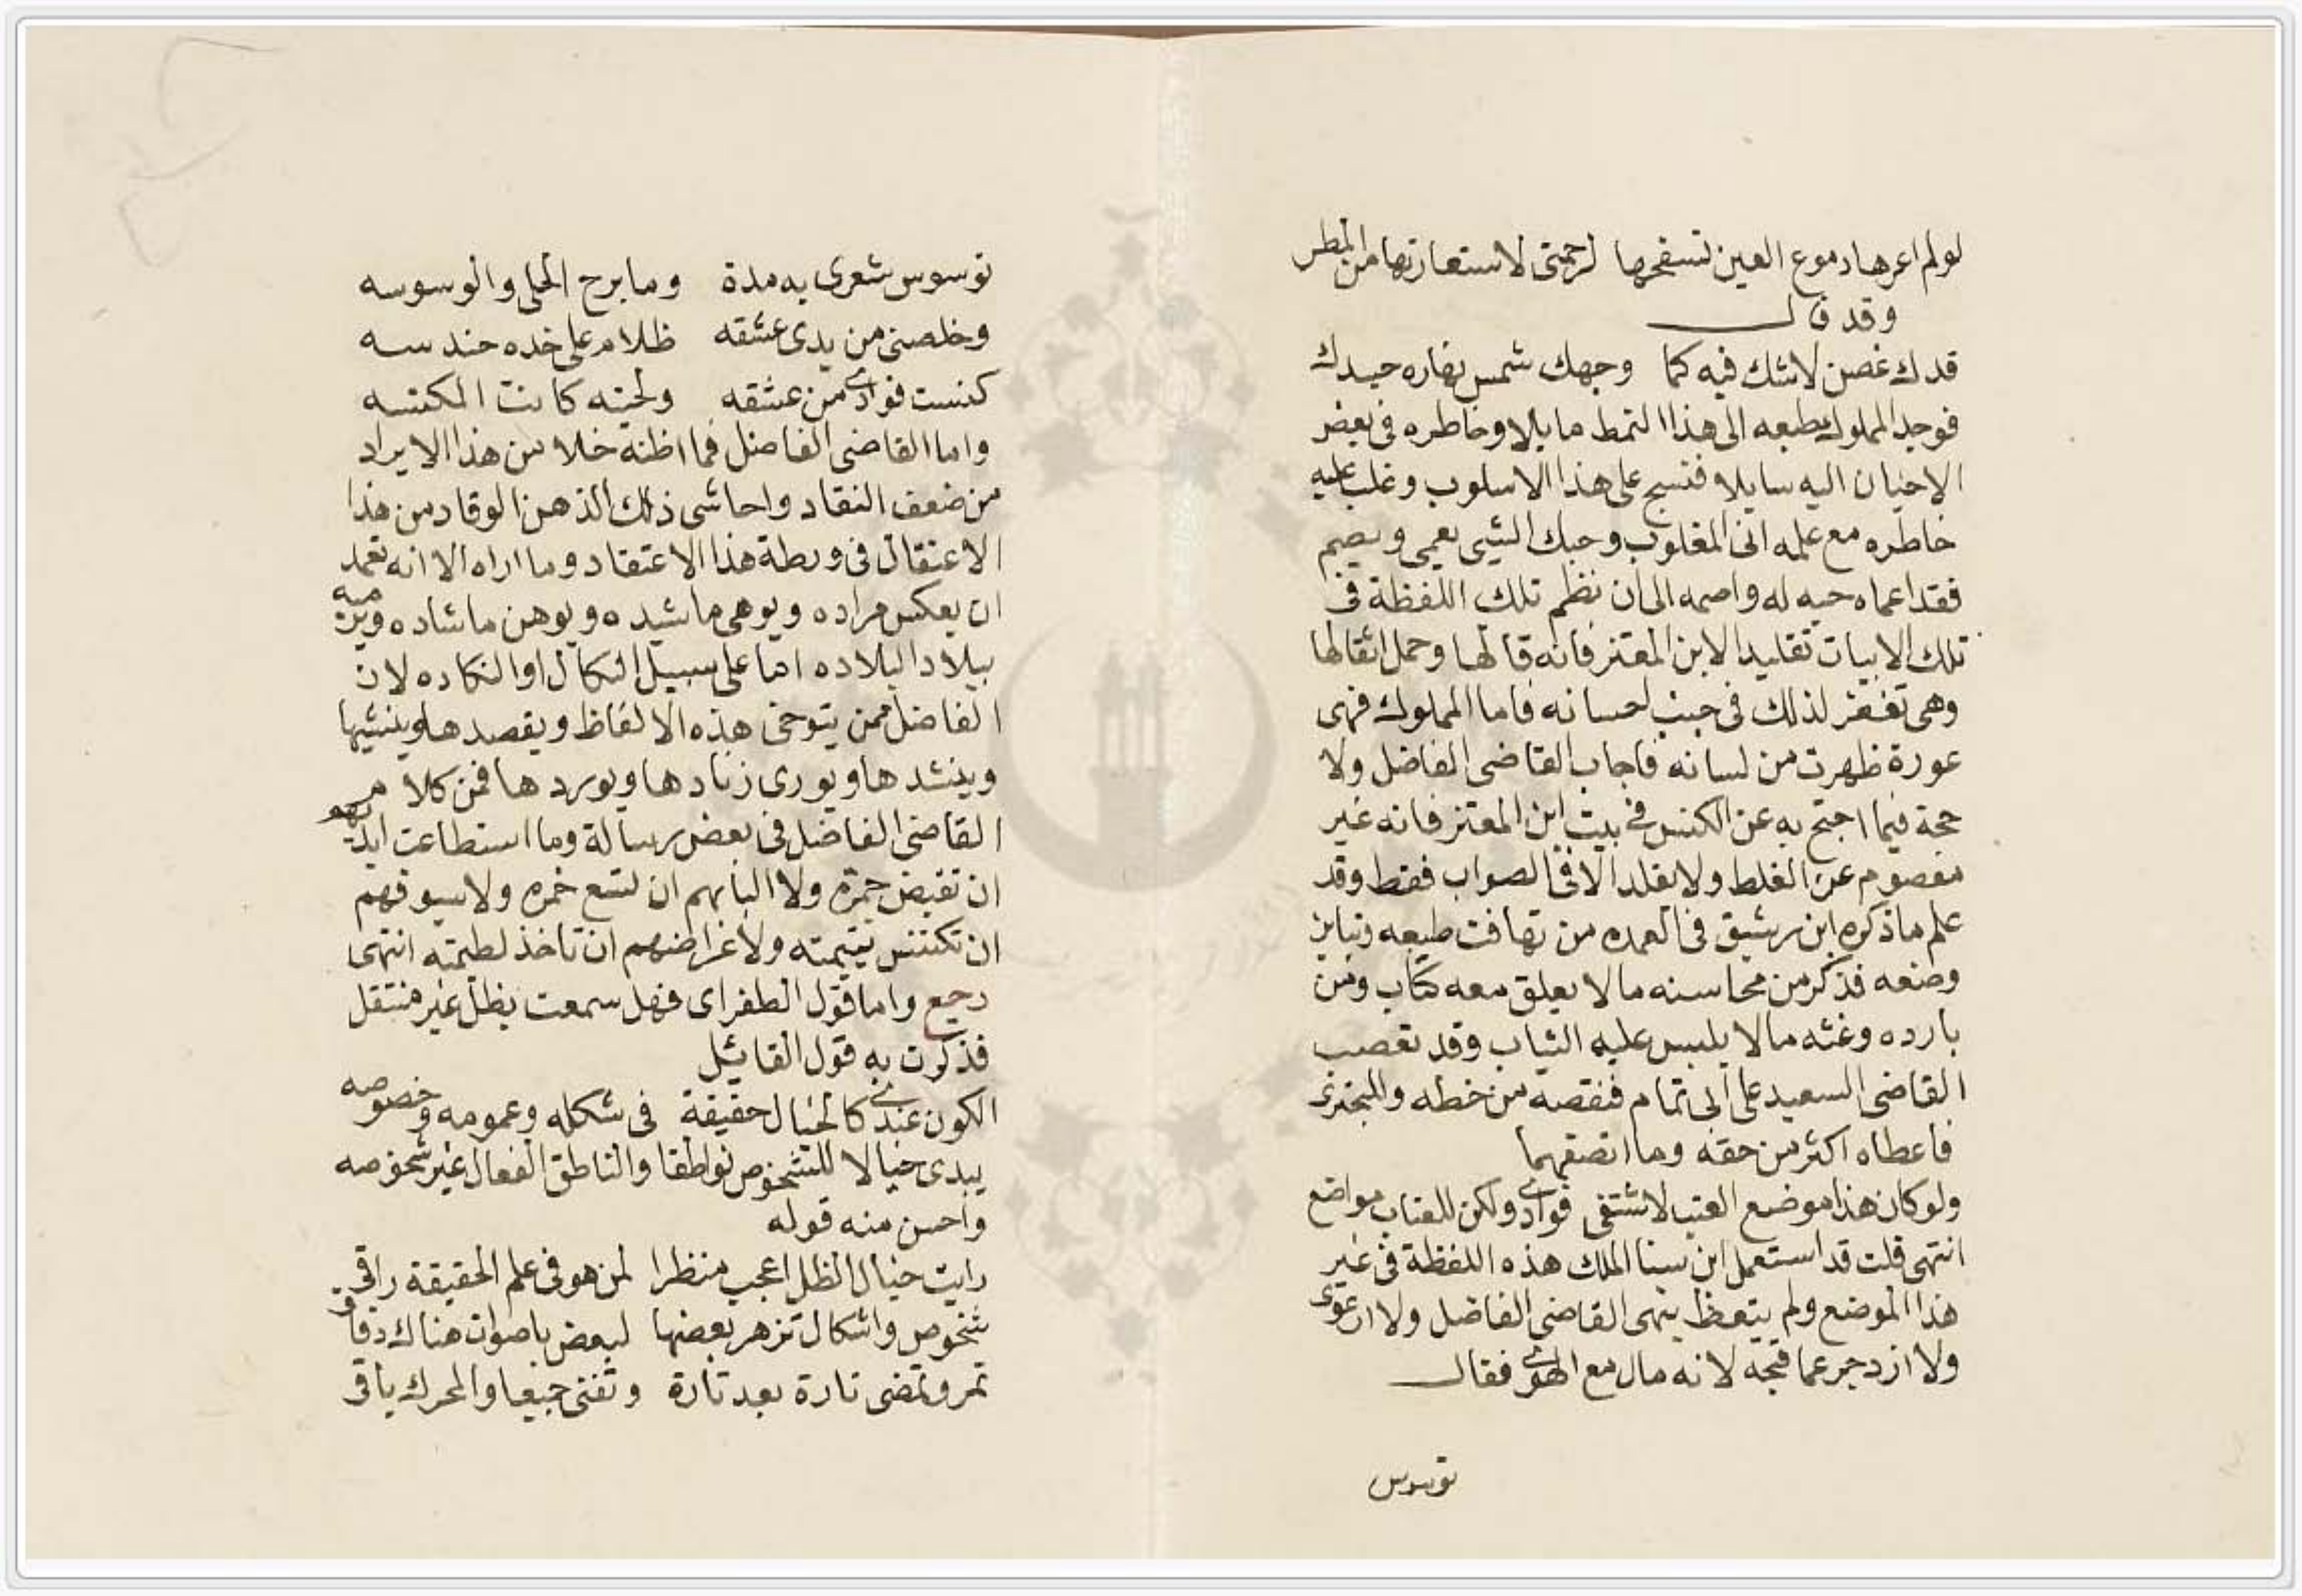 لولم اعرها دموع العين تسفحها لرحمتى لاستعارتها من المطر
وقد قال
قدك غصن لاشك فيه كما وجهك شمس نهاره جيدك
فوجد المملوك بطبعه الى هذا النمط مايلا وخاطره فى بعض
الاحيان اليه سايلا فنسج على هذا الاسلوب وغلب عليه
خاطره مع علمه انى المغلوب وحبك الشيى يعمى ويصم
فقد اعماه حبه له واصمه الى ان نظم تلك اللفظة فى
تلك الابيات تقليدا لابن المعتز فانه قالها وحمل اثقالها
وهى تغتفر لذلك فى جنب احسانه فاما المملوك فهى
عورة ظهرت من لسانه فاجاب القاضى الفاضل ولا
حجة فيما احتج به عن الكنس فى بيت ابن المعتز فانه غير
معصوم عن الغلط ولا يقلد الا فى الصواب فقط وقد
علم ماذكره ابن رشيق فى العمده من تهافت طبعه وتباين
وضعه فذكر من محاسنه مالا يعلق معه كتاب ومن
بارده وغثه مالا يلبس عليه الثياب وقد تعصب
القاضى السعيد على ابى تمام فنقصه من خطه والبحترى
فاعطاه اكثر من حقه وما انصفهما
ولوكان هذا موضع العتب لاشتفى فوادى ولكن للعتاب مواضع
انتهى قلت قد استعمل ابن سنا الملك هذه اللفظة فى غير
هذا الموضع ولم يتعظ بنهى القاضى الفاضل ولا ارعوى
ولا ازدجر عما قبحه لانه مال مع الهوى فقال
توسوس
توسوس شعرى به مدة ومابرح الحلى والوسوسه
وخلصنى من يدى عشقه ظلام على خده حندسه
كنست فوادى من عشقه ولحيته كانت المكنسه
واما القاضى الفاضل فما اظنه خلا من هذا الايراد
من ضعف النقاد واحاشى ذلك الذهن الوقاد من هذا
الاعتقال فى ورطة هذا الاعتقاد وما اراه الا انه تعمد
ان يعكس مراده ويوهى ماشيده ويوهن ماشاده ويرميه
ببلاد البلاده اما على سبيل النكال او النكاده لان
الفاضل ممن يتوخى هذه الالفاظ ويقصدها وينشيها
وينشدها ويورى زنادها ويوردها فمن كلام
القاضى الفاضل فى بعض رسالة وما استطاعت ايديهم
ان تقبض جمره ولا البابهم ان تسع خمره ولا سيوفهم
ان تكتنس يتيمته ولا اغراضهم ان تاخذ لطيمته انتهى
رجع واما قول الطغراى فهل سمعت بظل غير منتقل
فذكرت به قول القائيل
الكون عندى كالخيال حقيقة فى شكله وعمومه وخصوصه
يبدى خيالا للشخوص نواطقا والناطق الفعال غير شخوصه
واحسن منه قوله
رايت خيال الظل اعجب منظرا لمن هو فى علم الحقيقة راقى
شخوص واشكال تزهر بعضها لبعض باصوات هناك دقاق
تمر وتمضى تارة بعد تارة وتفنى جميعا والمحرك باقى